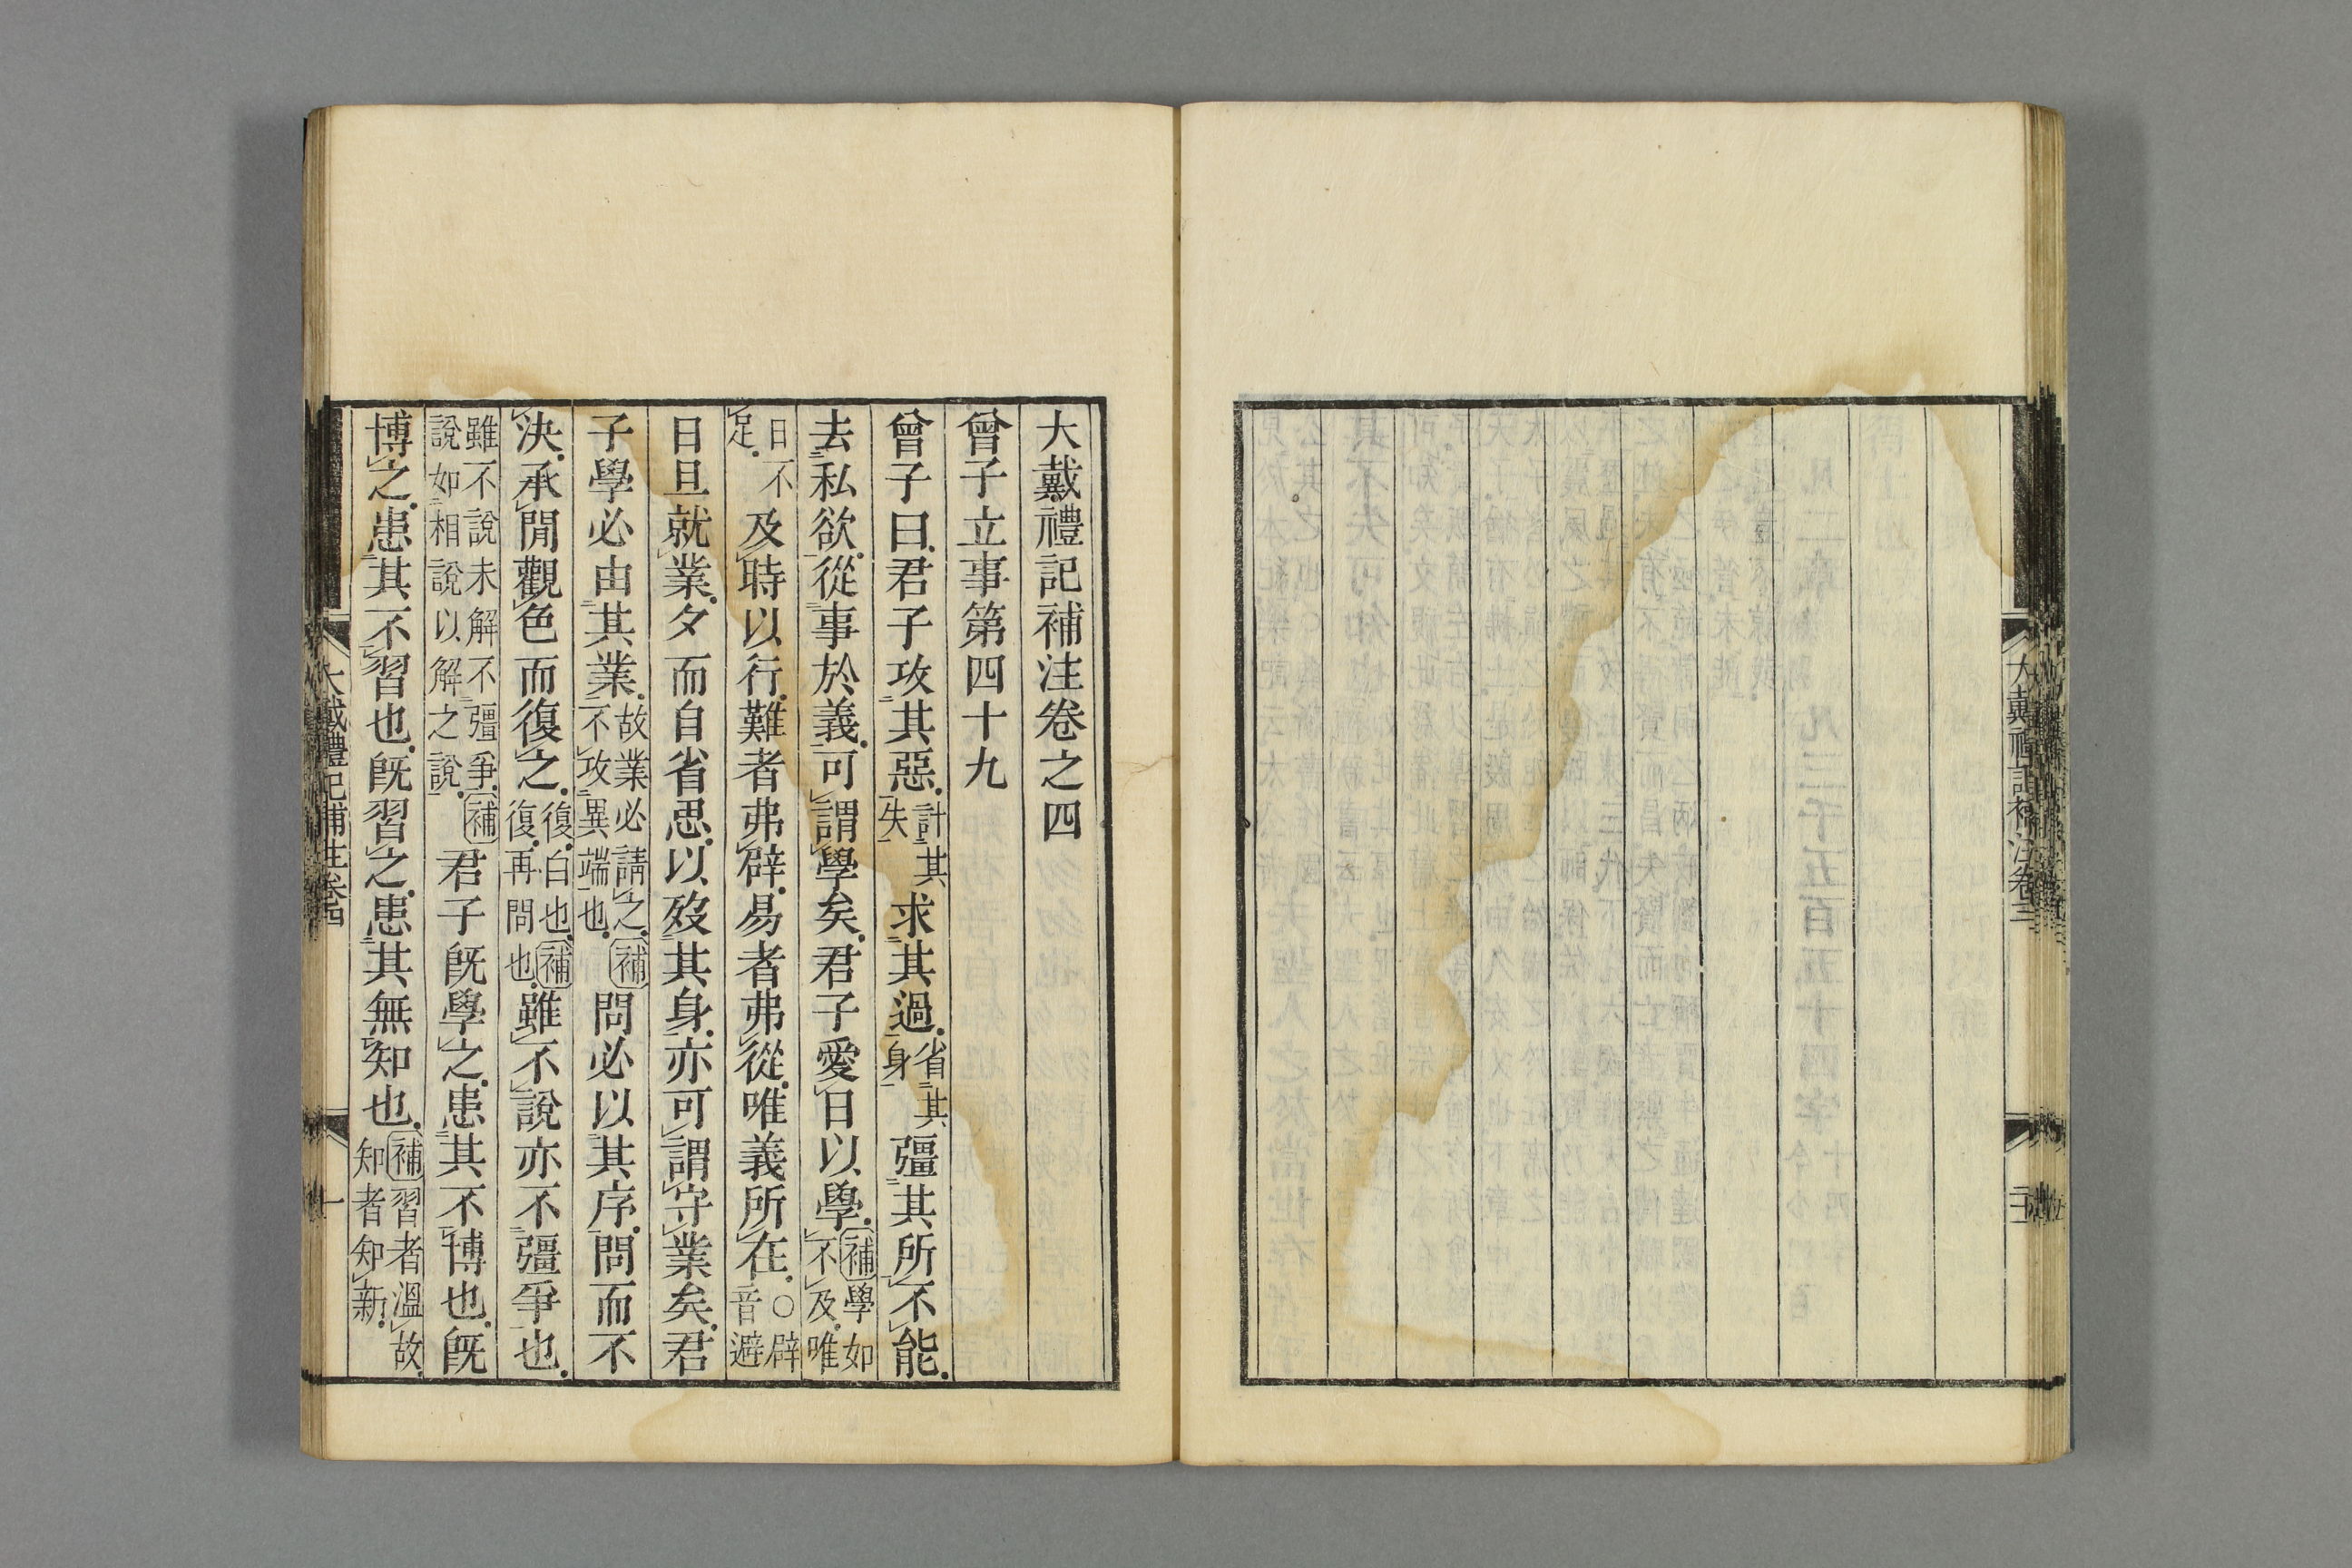 大戴禮記補注卷之四
曾子立事第四十九
曾子曰君子攻其惡計其失求其過省其身彊其所不能
去私欲從事於義可謂學矣君子愛日以學補學如不及唯
日不足及時以行難者弗辟易者弗從唯義所在○辟音避
日旦就業夕而自省思以歿其身亦可謂守業矣君
子學必由其業故業必請之不攻異端也補問必以其序問而不
決承閒觀色而復之復白也補復再問也雖不說亦不彊爭也
雖不說未解不彊爭補說如相說以解之說君子旣學之患其不博也旣
博之患其不習也旣習之患其無知也補習者溫故知者知新
大戴禮記補注卷四
一